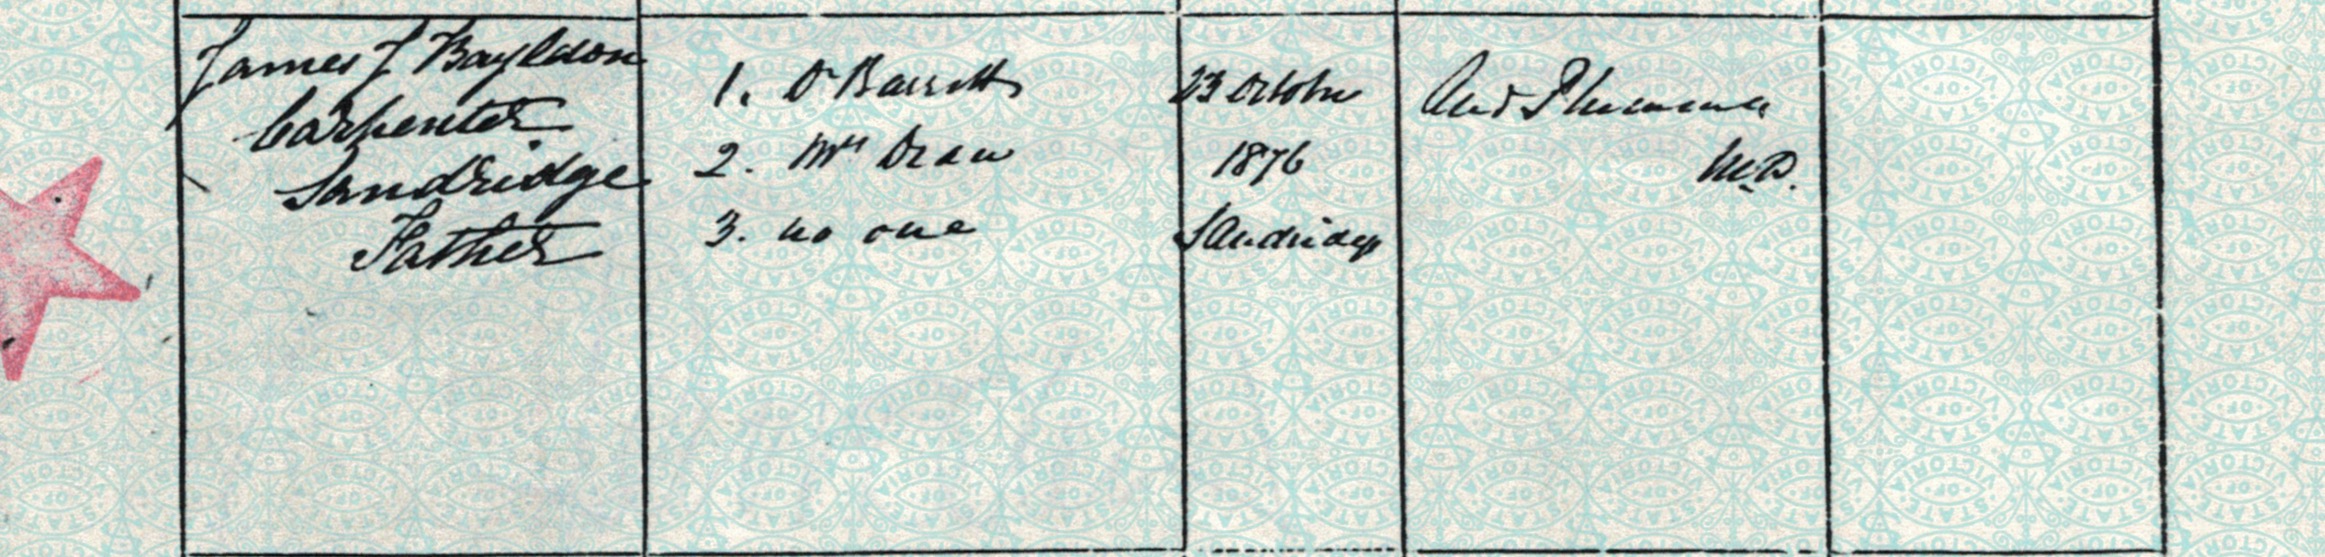 James J Bayldon
Carpenter
Sandridge
Father
1. Dr Barrett
2. Mrs Draw
3. no one
23 October
1876
Sandridge
And Plummer
M.D.